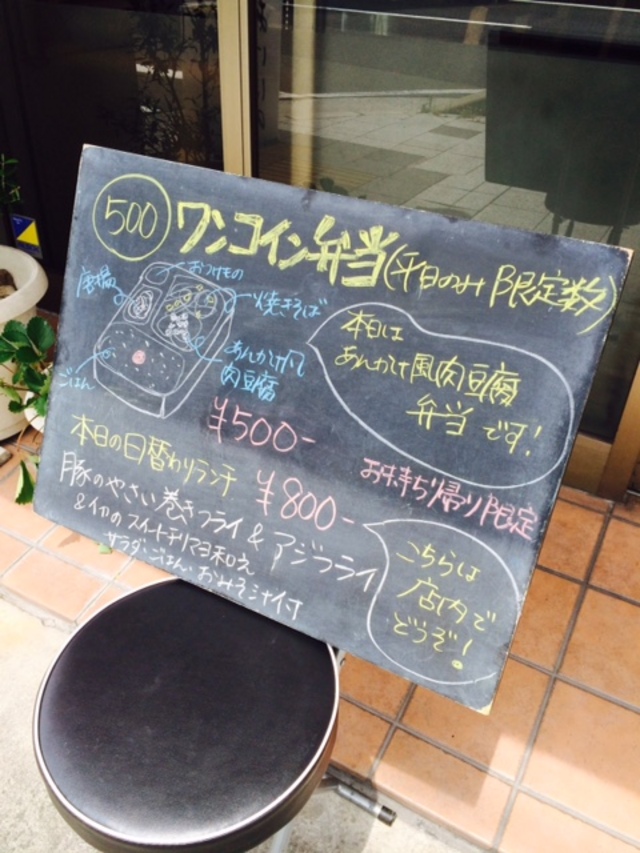 500 ワンコイン弁当(平日のみ限定数)
おつけもの
焼きそば
ごはん
あんかけ風
肉豆腐
本日は
あんかけ風肉豆腐
弁当です!
¥500-
お持ち帰り限定
本日の日替わりランチ ¥800-
豚のやさい巻きフライ&アジフライ
&イカのスイートチリマヨ和え
サラダ・ごはん・おみそ汁付
こちらは
店内で
どうぞ!